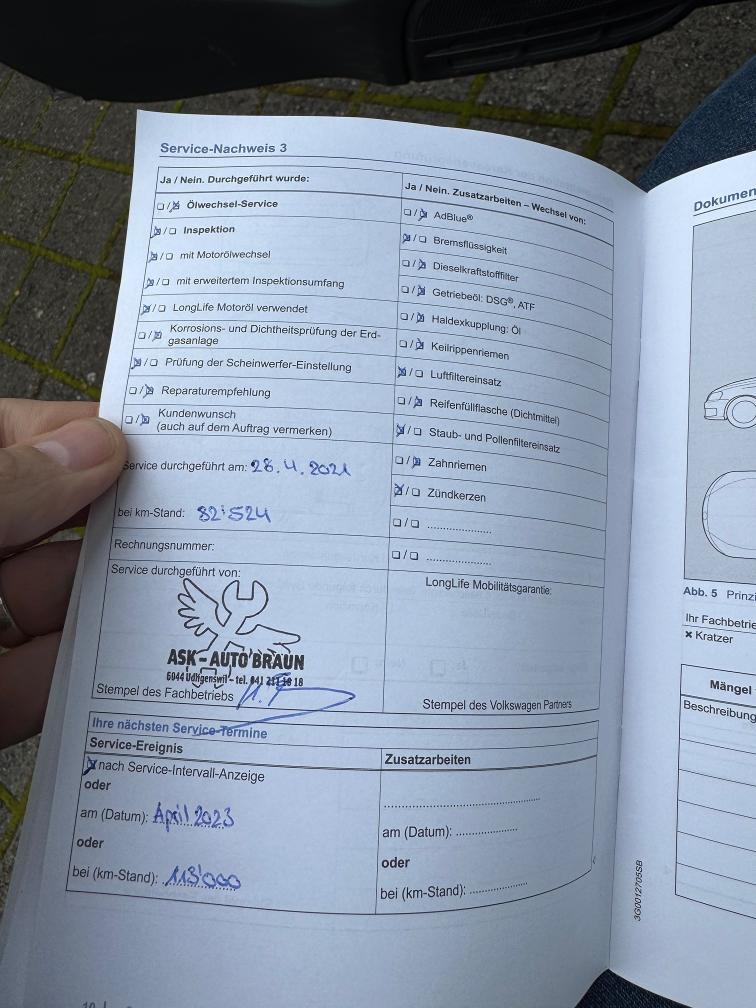 Service-Nachweis 3
Ja / Nein. Durchgeführt wurde:
☐/☒ Ölwechsel-Service
☒/☐ Inspektion
☒/☐ mit Motorölwechsel
☒/☐ mit erweitertem Inspektionsumfang
☒/☐ LongLife Motoröl verwendet
☐/☒ Korrosions- und Dichtheitsprüfung der Erd-
gasanlage
☒/☐ Prüfung der Scheinwerfer-Einstellung
☐/☒ Reparaturempfehlung
☐/☒ Kundenwunsch
(auch auf dem Auftrag vermerken)
Service durchgeführt am: 28.4.2021
bei km-Stand: 82'524
Rechnungsnummer:
Service durchgeführt von:
ASK-AUTO BRAUN
6044 Udligenswil - tel. 041
18
Stempel des Fachbetriebs
Ja / Nein. Zusatzarbeiten – Wechsel von:
☐/☒ AdBlue®
☒/☐ Bremsflüssigkeit
☐/☒ Dieselkraftstofffilter
☐/☒ Getriebeöl: DSG®, ATF
☐/☒ Haldexkupplung: Öl
☐/☒ Keilrippenriemen
☒/☐ Luftfiltereinsatz
☐/☒ Reifenfüllflasche (Dichtmittel)
☒/☐ Staub- und Pollenfiltereinsatz
☐/☒ Zahnriemen
☒/☐ Zündkerzen
☐/☐ ....................
☐/☐ ....................
LongLife Mobilitätsgarantie:
Stempel des Volkswagen Partners
Ihre nächsten Service-Termine
Service-Ereignis
☒ nach Service-Intervall-Anzeige
oder
am (Datum): April 2023
oder
bei (km-Stand): 113'000
Zusatzarbeiten
..................................................
am (Datum): ....................
oder
bei (km-Stand): ....................
3G0012705SB
Dokumen
Abb. 5 Prinzi
Ihr Fachbetrie
× Kratzer
Mängel
Beschreibung